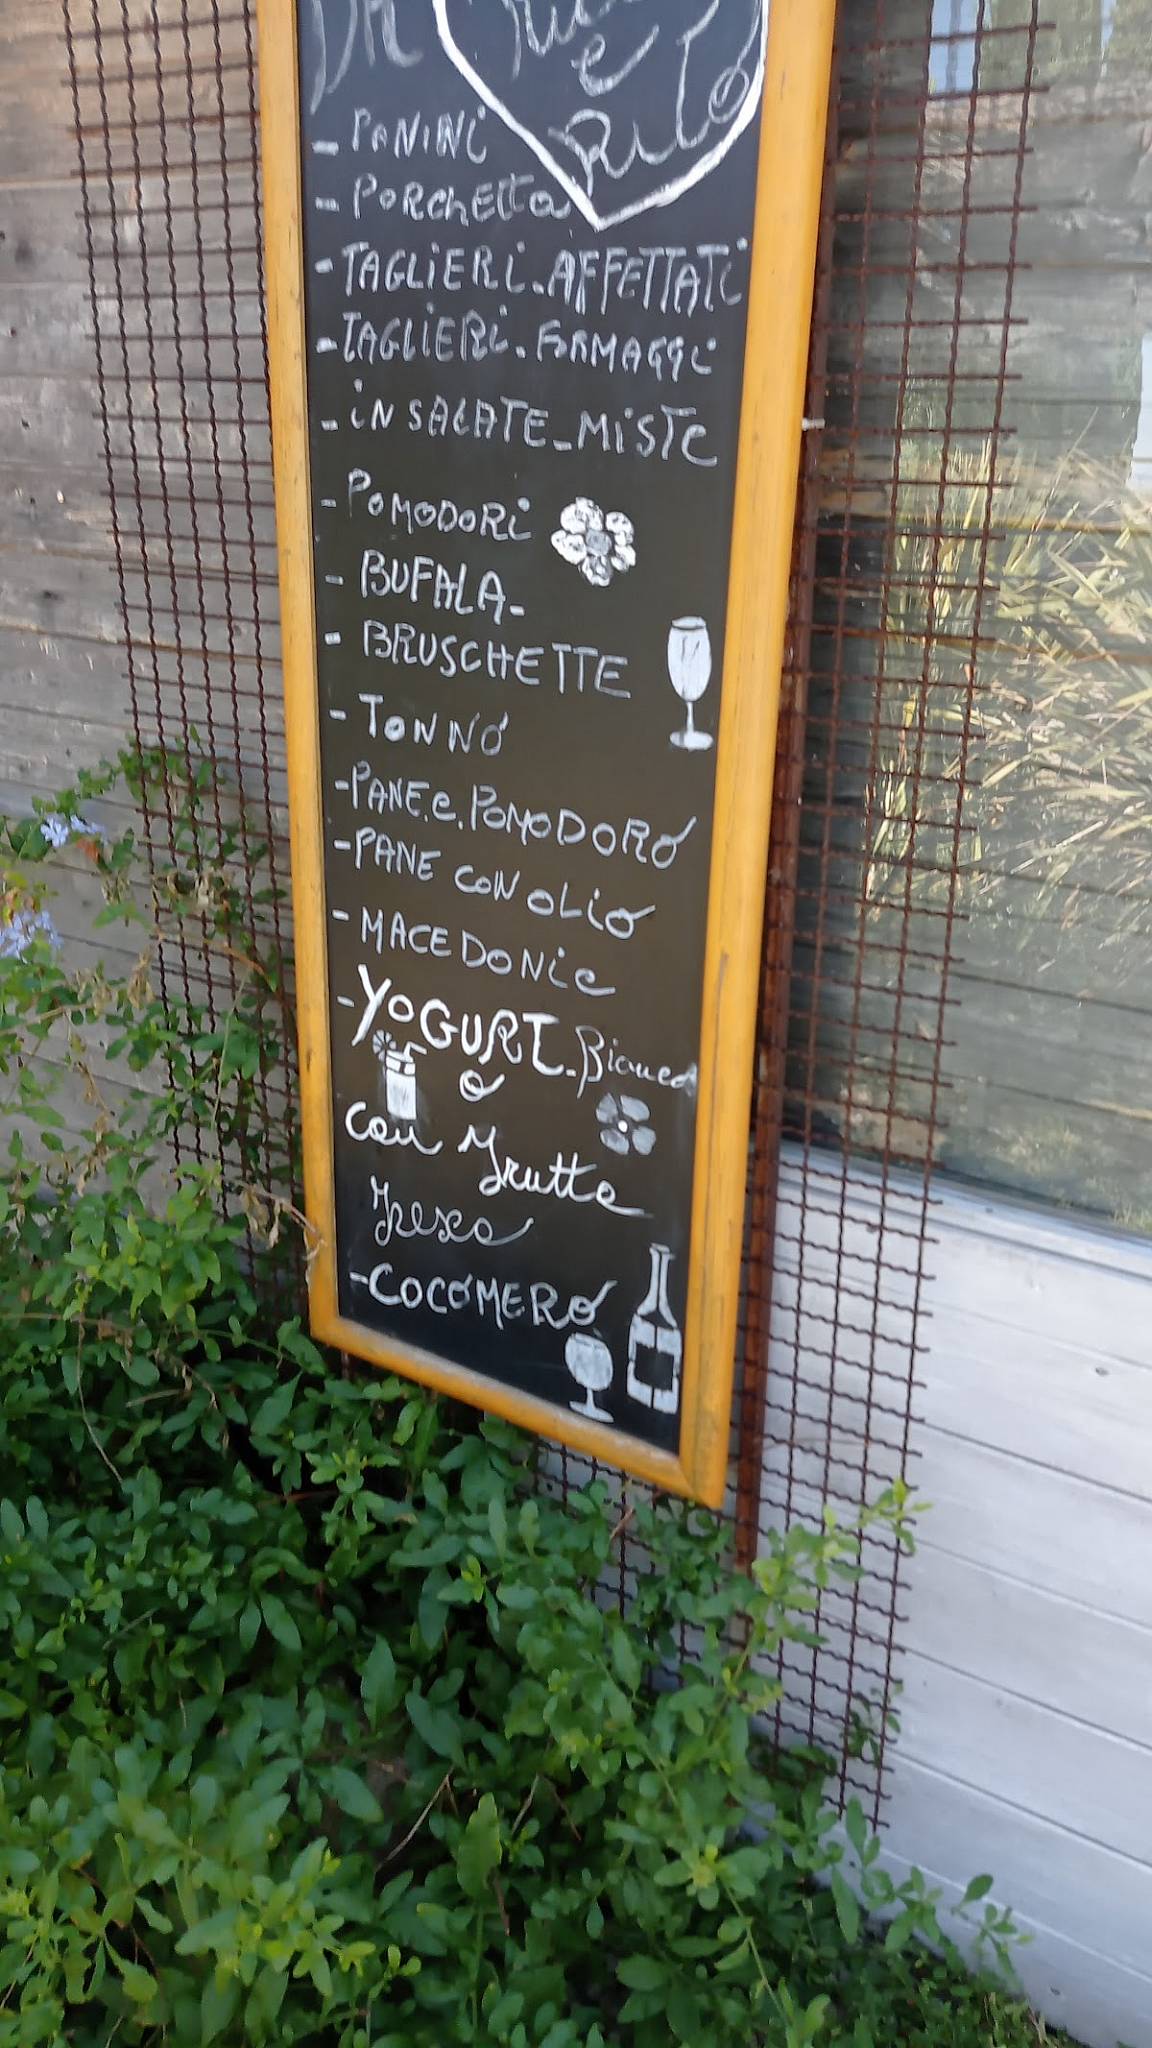 DA
e
- PANINI
- PORCHETTA
- TAGLIERI - AFFETTATI
- TAGLIERI - FORMAGGI
- INSALATE - MISTE
- POMODORI
- BUFALA -
- BRUSCHETTE
- TONNO
- PANE.e.POMODORO
- PANE CON OLIO
- MACEDONIe
- YOGURT - Bianco
o
con Frutta
Fresca
- COCOMERO